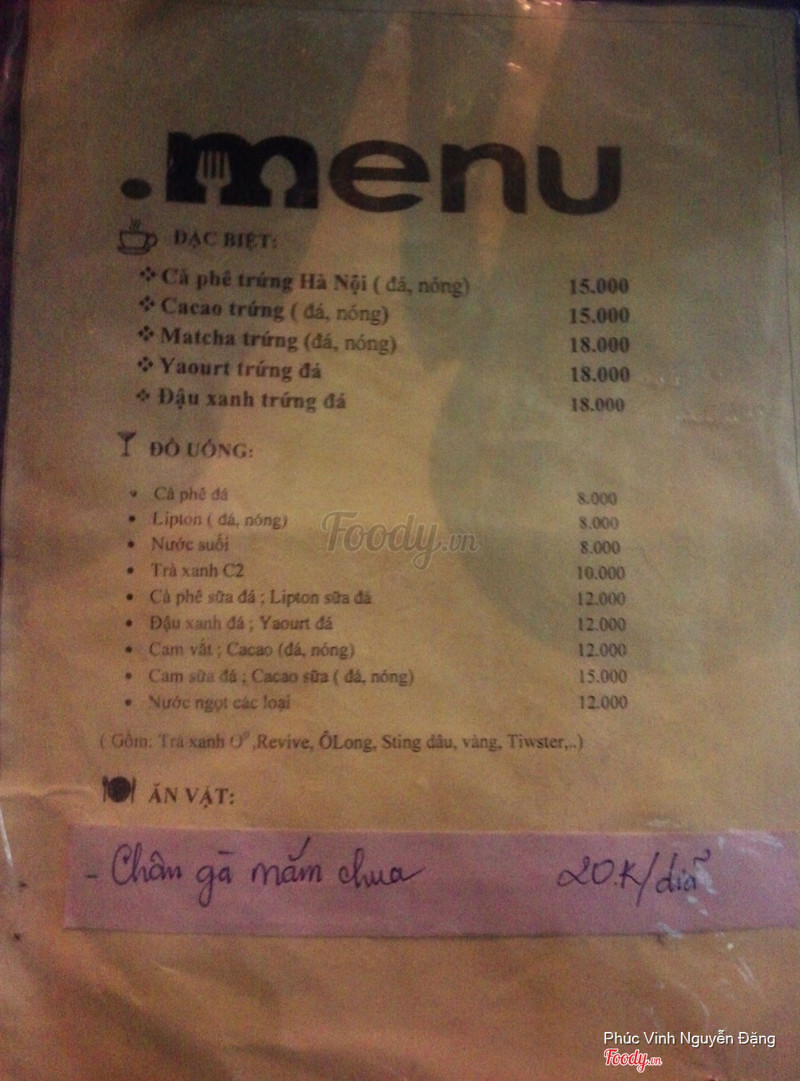 .menu
ĐẶC BIỆT:
❖ Cà phê trứng Hà Nội ( đá, nóng) 15.000
❖ Cacao trứng ( đá, nóng) 15.000
❖ Matcha trứng (đá, nóng) 18.000
❖ Yaourt trứng đá 18.000
❖ Đậu xanh trứng đá 18.000
ĐỒ UỐNG:
• Cà phê đá 8.000
• Lipton ( đá, nóng) 8.000
• Nước suối 8.000
• Trà xanh C2 10.000
• Cà phê sữa đá ; Lipton sữa đá 12.000
• Đậu xanh đá ; Yaourt đá 12.000
• Cam vắt ; Cacao (đá, nóng) 12.000
• Cam sữa đá ; Cacao sữa ( đá, nóng) 15.000
• Nước ngọt các loại 12.000
( Gồm: Trà xanh O⁰ ,Revive, ÔLong, Sting dâu, vàng, Tiwster,..)
ĂN VẶT:
- Chân gà mắm chua 20.K/dĩa
Foody.vn
Phúc Vinh Nguyễn Đặng
Foody.vn